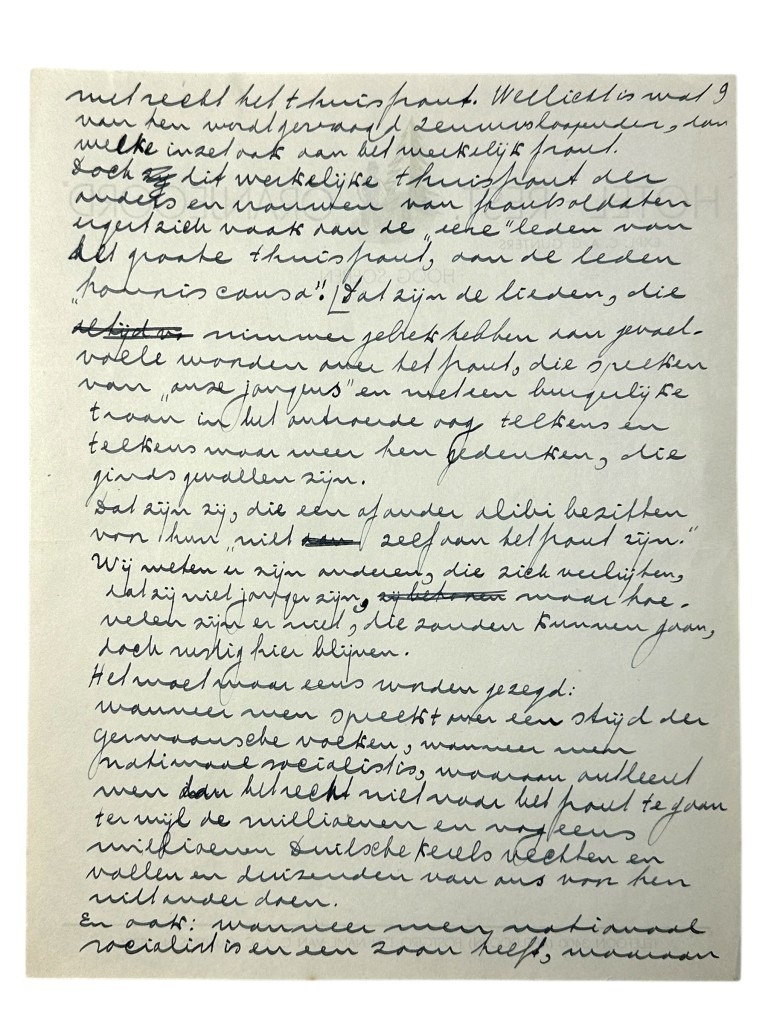 met recht het thuisfront. Wellicht is wat 9
van hen wordt gevraagd zenuwsloopender, dan
welke inzet ook aan het werkelijk front.
Doch zij dit werkelijke thuisfront der
ouders en vrouwen van frontsoldaten
ergert zich vaak aan de "eere" leden van
het groote thuisfront, aan de leden
"honoris causa"! Dat zijn de lieden, die
altijd vo nimmer gebrek hebben aan gevoel-
volle woorden over het front, die spreken
van "onze jongens" en met een burgerlijke
traan in het ontroerde oog telkens en
telkens maar weer hen gedenken, die
ginds gevallen zijn.
Dat zijn zij, die een of ander alibi bezitten
voor hun "niet aan zelf aan het front zijn."
Wij weten er zijn anderen, die zich verbijten,
dat zij niet jonger zijn, zij behooren maar hoe-
velen zijn er niet, die zouden kunnen gaan,
doch rustig hier blijven.
Het moet maar eens worden gezegd:
wanneer men spreekt over een strijd der
germaansche volken, wanneer men
nationaalsocialist is, waaraan ontleent
men dan het recht niet naar het front te gaan
terwijl de millioenen en nog eens
millioenen Duitsche kerels vechten en
vallen en duizenden van ons voor hen
niet ander doen.
En ook: wanneer men nationaal
socialist is en een zoon heeft, waaraan
HOTEL
HOOG SOEREN